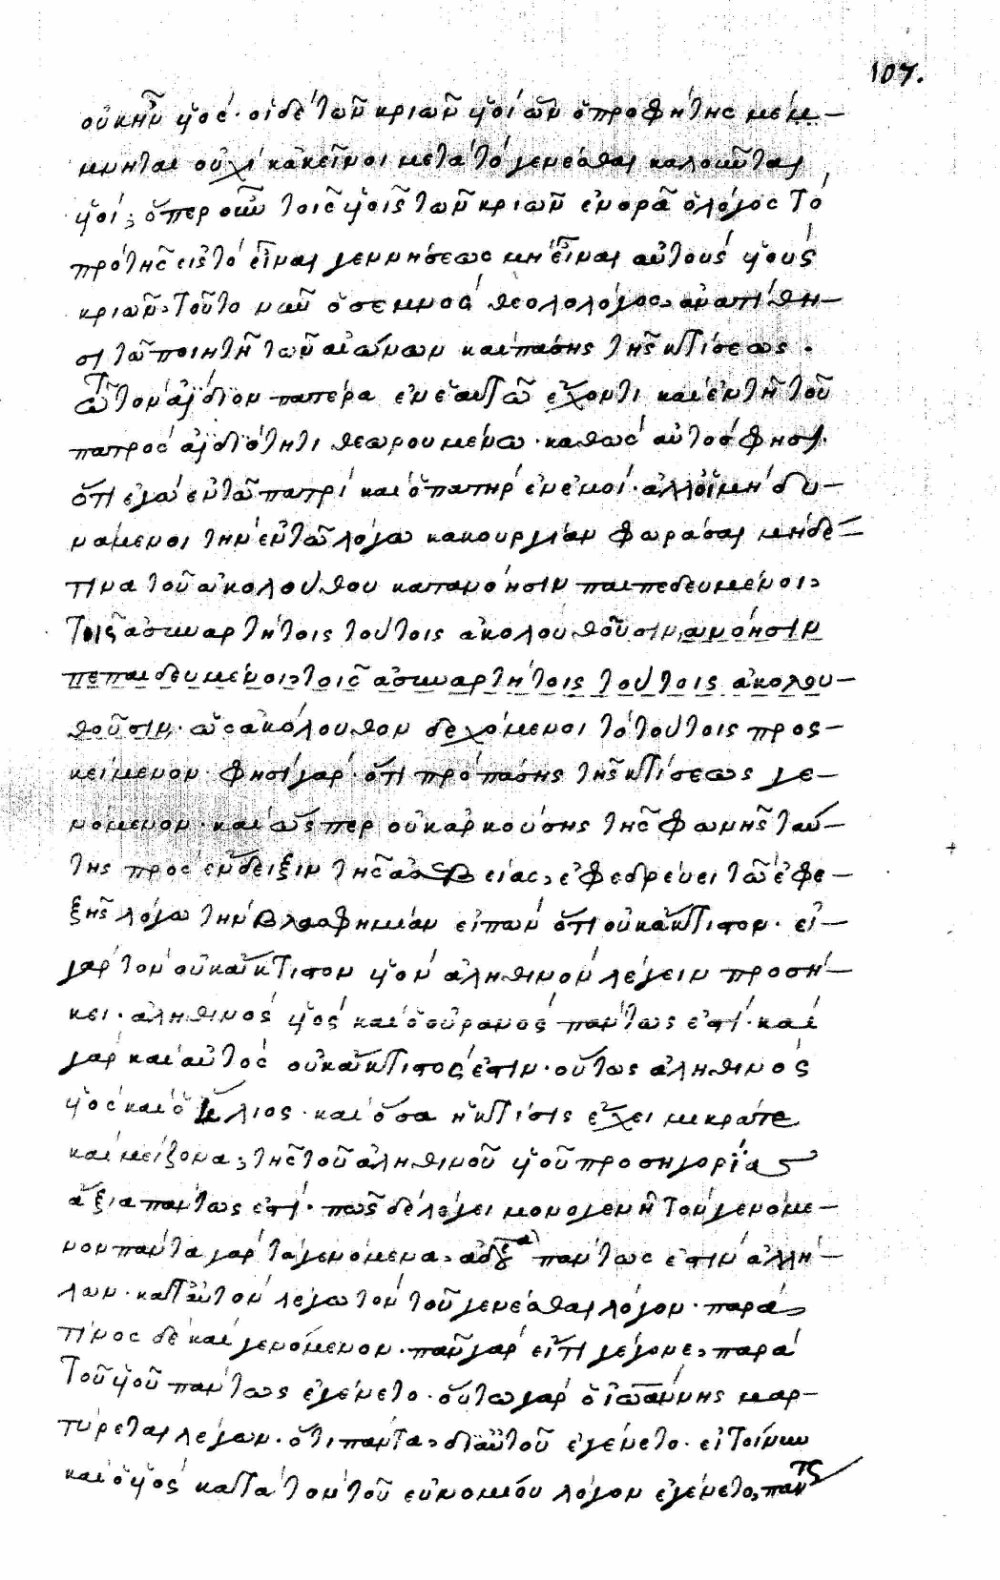 107.
οὐκ ἦν ὑὸς· οἱ δὲ τῶν κριῶν ὑοὶ ὧν ὁ προφήτης μέμ–
μνηται οὐχὶ κἀκεῖνοι μετὰ τὸ γενέσθαι καλοῦνται
ὑοί; ὅπερ οὖν τοῖς ὑοῖς τῶν κριῶν ἐνορᾶ ὁ λόγος τὸ
πρὸ τῆς εἰς τὸ εἶναι γεννήσεως μὴ εἶναι αὐτοὺς ὑοὺς
κριῶν, τοῦτο νῦν ὁ σεμνὸς θεολολόγος, ἀνατίθη–
σι τῶ ποιητῆ τῶν αἰώνων καὶ πάσης τῆς κτίσεως.
τῶ τὸν ἀΐδιον πατέρα ἐν ἑαυτῶ ἔχοντι καὶ ἐν τῆ τοῦ
πατρὸς ἀϊδιότητι θεωρουμένω· καθὼς αὐτὸς φησι·
ὅτι ἐγὼ ἐν τῶ πατρὶ καὶ ὁ πατὴρ ἐν ἐμοί· ἀλλ' οἱ μὴ δυ–
νάμενοι τὴν ἐν τῶ λόγω κακουργίαν φωράσαι μήδέ–
τινα τοῦ ἀκολούθου κατανόησιν παιπεδευμένοι,
τοῖς ἀσυναρτήτοις τούτοις ἀκολουθοῦσιν, ανόησιν
πεπαιδευμένοι, τοῖς ἀσυναρτήτοις τούτοις ἀκολου–
θοῦσιν· ὡς ἀκόλουθον δεχόμενοι τὸ τούτοις προς–
κείμενον· φησὶ γὰρ· ὅτι πρὸ πάσης τῆς κτίσεως γε–
νόμενον· καὶ ὥσπερ οὐκ ἀρκούσης τῆς φωνῆς ταύ–
της πρὸς ἔνδειξιν τῆς ἀσεβείας, ἐφεδρεύει τῶ ἐφε–
ξῆς λόγω τὴν βλασφημίαν εἰπὼν ὅτι οὐκ ἄκτιστον· εἰ–
γὰρ τὸν οὐκ ἄκτιστον ὑὸν ἀληθινὸν λέγειν προσή–
κει· ἀληθινὸς ὑὸς καὶ ὁ οὐρανὸς πάντως ἐστί· καὶ
γὰρ καὶ αὐτὸς οὐκ ἄκτιστος ἐστιν· οὕτως ἀληθινὸς
ὑὸς καὶ ὁ ἥλιος· καὶ ὅσα ἡ κτίσις ἔχει μικρά τε
καὶ μείζονα, τῆς τοῦ ἀληθινοῦ ὑοῦ προσηγορίας
ἄξια πάντως ἐστί· πῶς δὲ λέγει μονογενῆ τὸν γενόμε–
νον πάντα γὰρ τὰ γενόμενα, ἀδελφὰ πάντως ἐστὶν ἀλλή–
λων· κατ' αὐτὸν λέγω τὸν τοῦ γενέσθαι λόγον· παρὰ
τίνος δὲ καὶ γενόμενον· πᾶν γὰρ εἴ τι γέγονε, παρὰ
τοῦ ὑοῦ πάντως ἐγένετο· οὕτω γὰρ ὁ ἰωάννης μαρ–
τύρεται λέγων· ὅτι πάντα, δι' αὐτοῦ ἐγένετο· εἰ τοίνυν
καὶ ὁ ὑὸς κατὰ τὸν τοῦ εὐνομίου λόγον ἐγένετο, πάντς